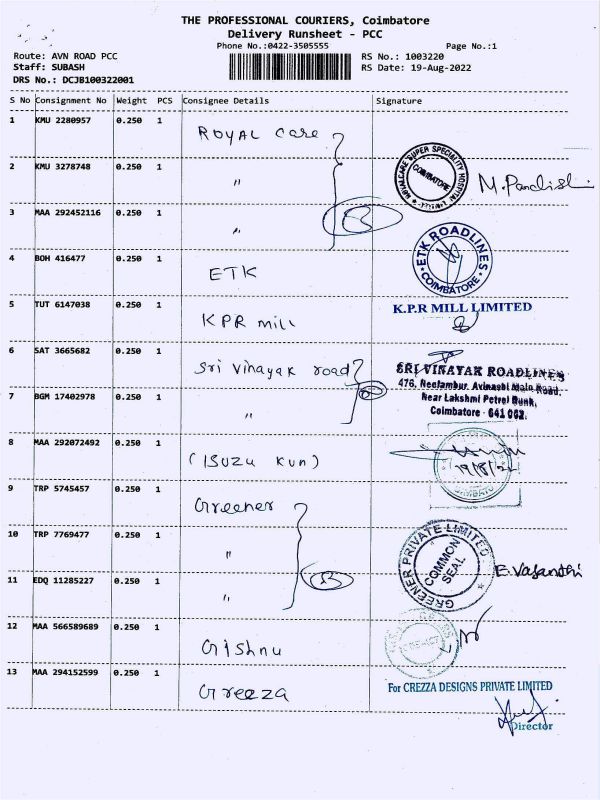 THE PROFESSIONAL COURIERS, Coimbatore
Delivery Runsheet - PCC
Phone No.:0422-3505555
Page No.:1
Route: AVN ROAD PCC
RS No.: 1003220
Staff: SUBASH
RS Date: 19-Aug-2022
DRS No.: DCJB100322001
S No Consignment No Weight PCS Consignee Details Signature
1 KMU 2280957 0.250 1 ROYAL Care
2 KMU 3278748 0.250 1 "
SUPER SPECIALITY HOSPITAL
COIMBATORE
3 MAA 292452116 0.250 1 "
3
4 BOH 416477 0.250 1 ETK
ETK ROADLINES
COIMBATORE
5 TUT 6147038 0.250 1 KPR mill
K.P.R MILL LIMITED
6 SAT 3665682 0.250 1 Sri Vinayak road
SRI VINAYAK ROADLINES
476, Neelambur, Avinashi Main Road,
7 BGM 17402978 0.250 1 "
Near Lakshmi Petrol Bunk,
Coimbatore - 641 062.
8 MAA 292072492 0.250 1 (ISUZU KUN)
19/8/22
9 TRP 5745457 0.250 1 Greener
10 TRP 7769477 0.250 1 "
GREENER PRIVATE LIMITED
COMMON SEAL
11 EDQ 11285227 0.250 1 "
3
E. Vasandhi
12 MAA 566589689 0.250 1 Grishnu
13 MAA 294152599 0.250 1 Greeza
For CREZZA DESIGNS PRIVATE LIMITED
Director